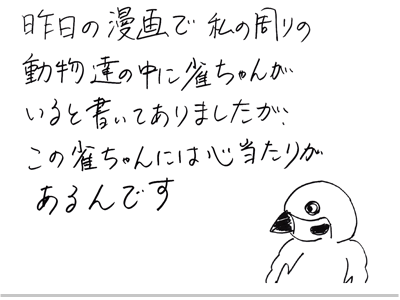 昨日の漫画で私の周りの
動物達の中に雀ちゃんが
いると書いてありましたが、
この雀ちゃんには心当たりが
あるんです